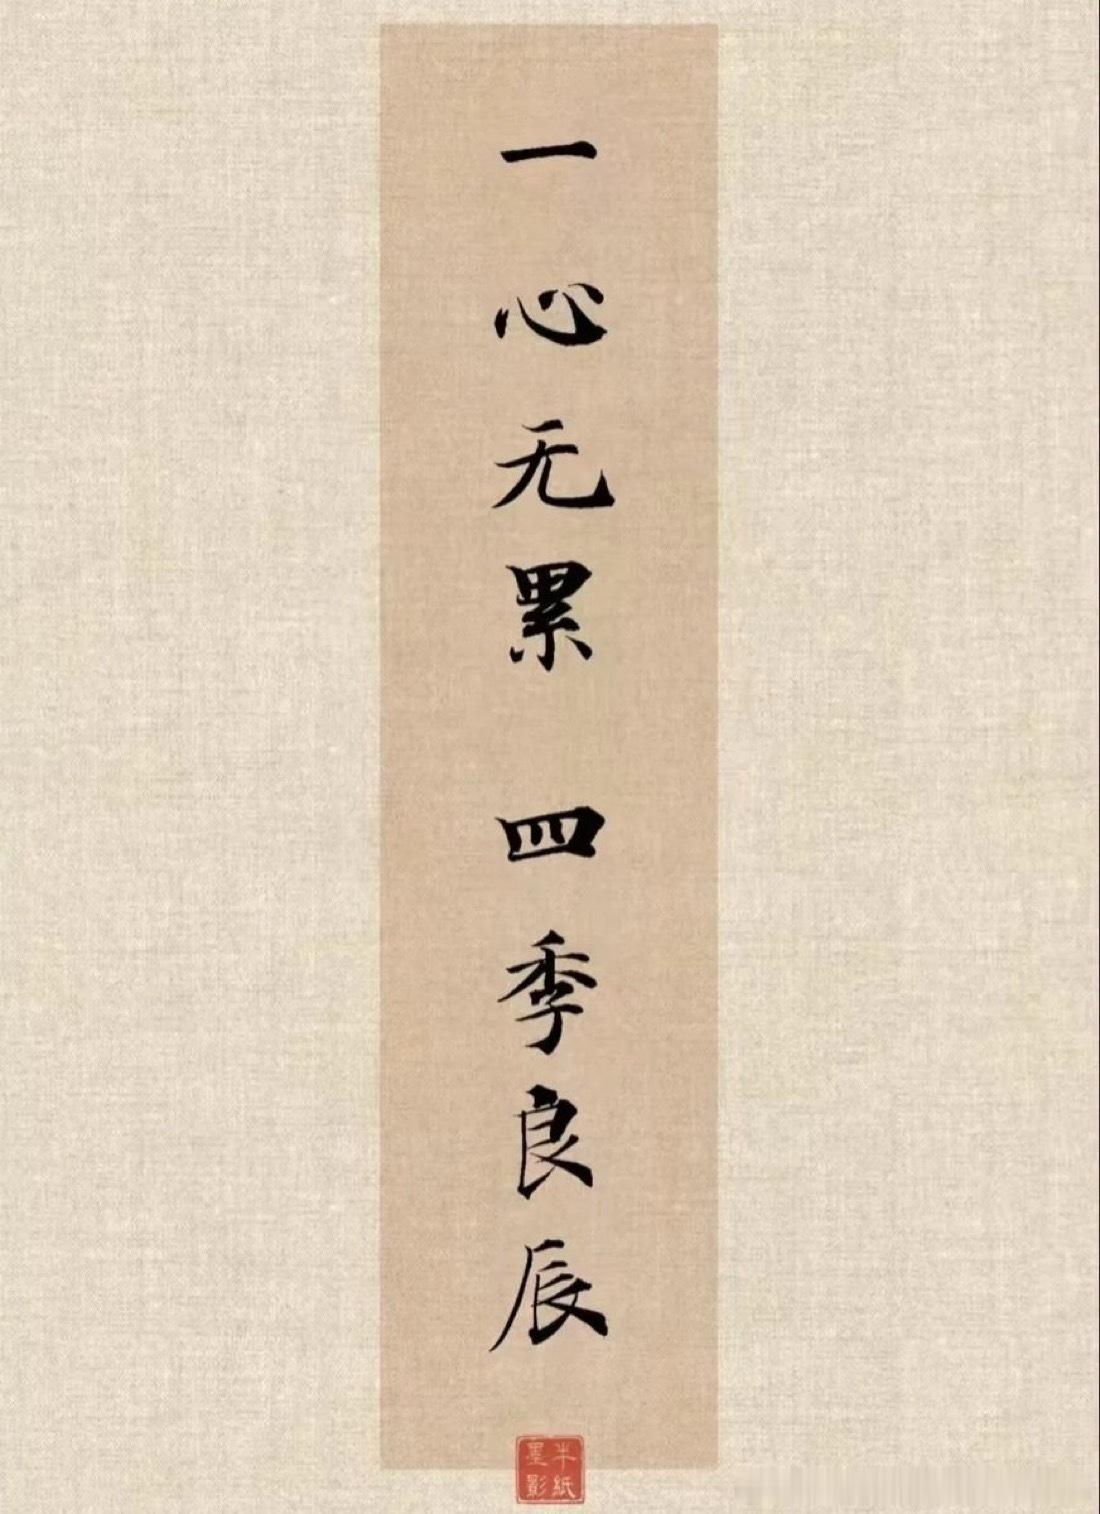 一心无累 四季良辰
半紙
墨影